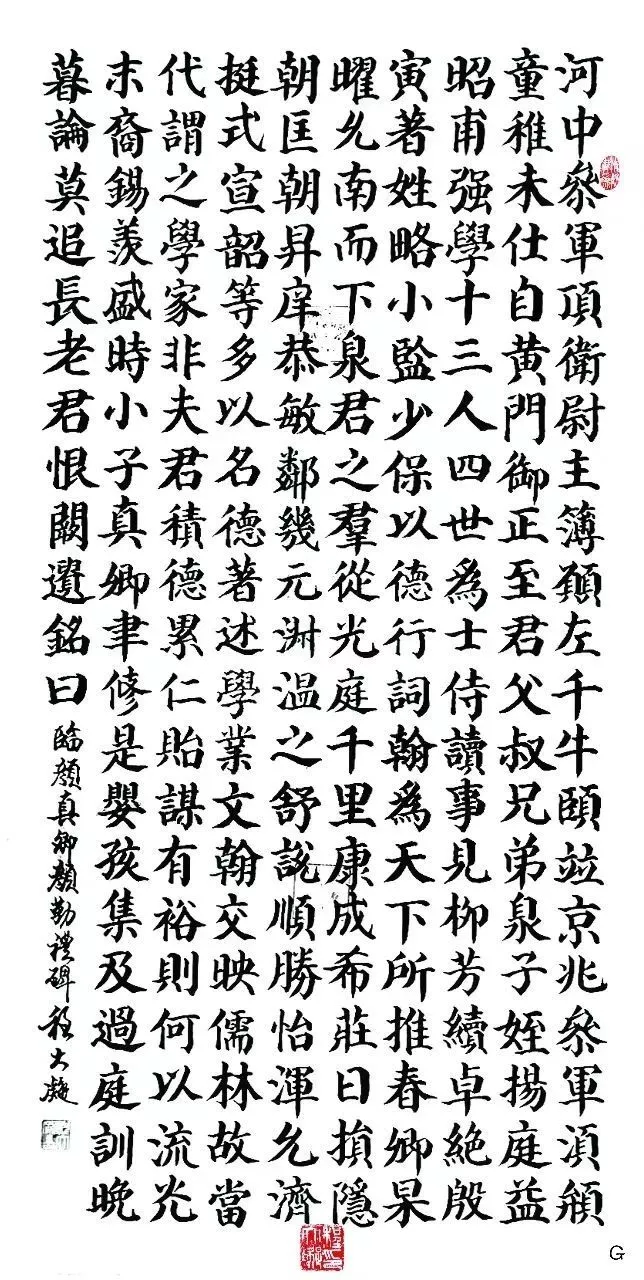 河中叅軍頂衛尉主簿願左千牛頤竝京兆叅軍湏頯
童稚未仕自黃門御正至君父叔兄弟泉子姪揚庭益
昭甫强學十三人四世為士侍讀事見柳芳續卓絕殷
寅著姓略小監少保以德行詞翰為天下所推春卿杲
曜允南而下泉君之羣從光庭千里康成希莊日損隱
朝匡朝昇庠恭敏鄰幾元淵温之舒說順勝怡渾允濟
挺式宣韶等多以名德著述學業文翰交映儒林故當
代謂之學家非夫君積德累仁貽謀有裕則何以流光
末裔錫羨盛時小子真卿聿修是嬰孩集及過庭訓晚
暮論莫追長老君恨闕遺銘曰
臨顏真卿顏勤禮碑
G